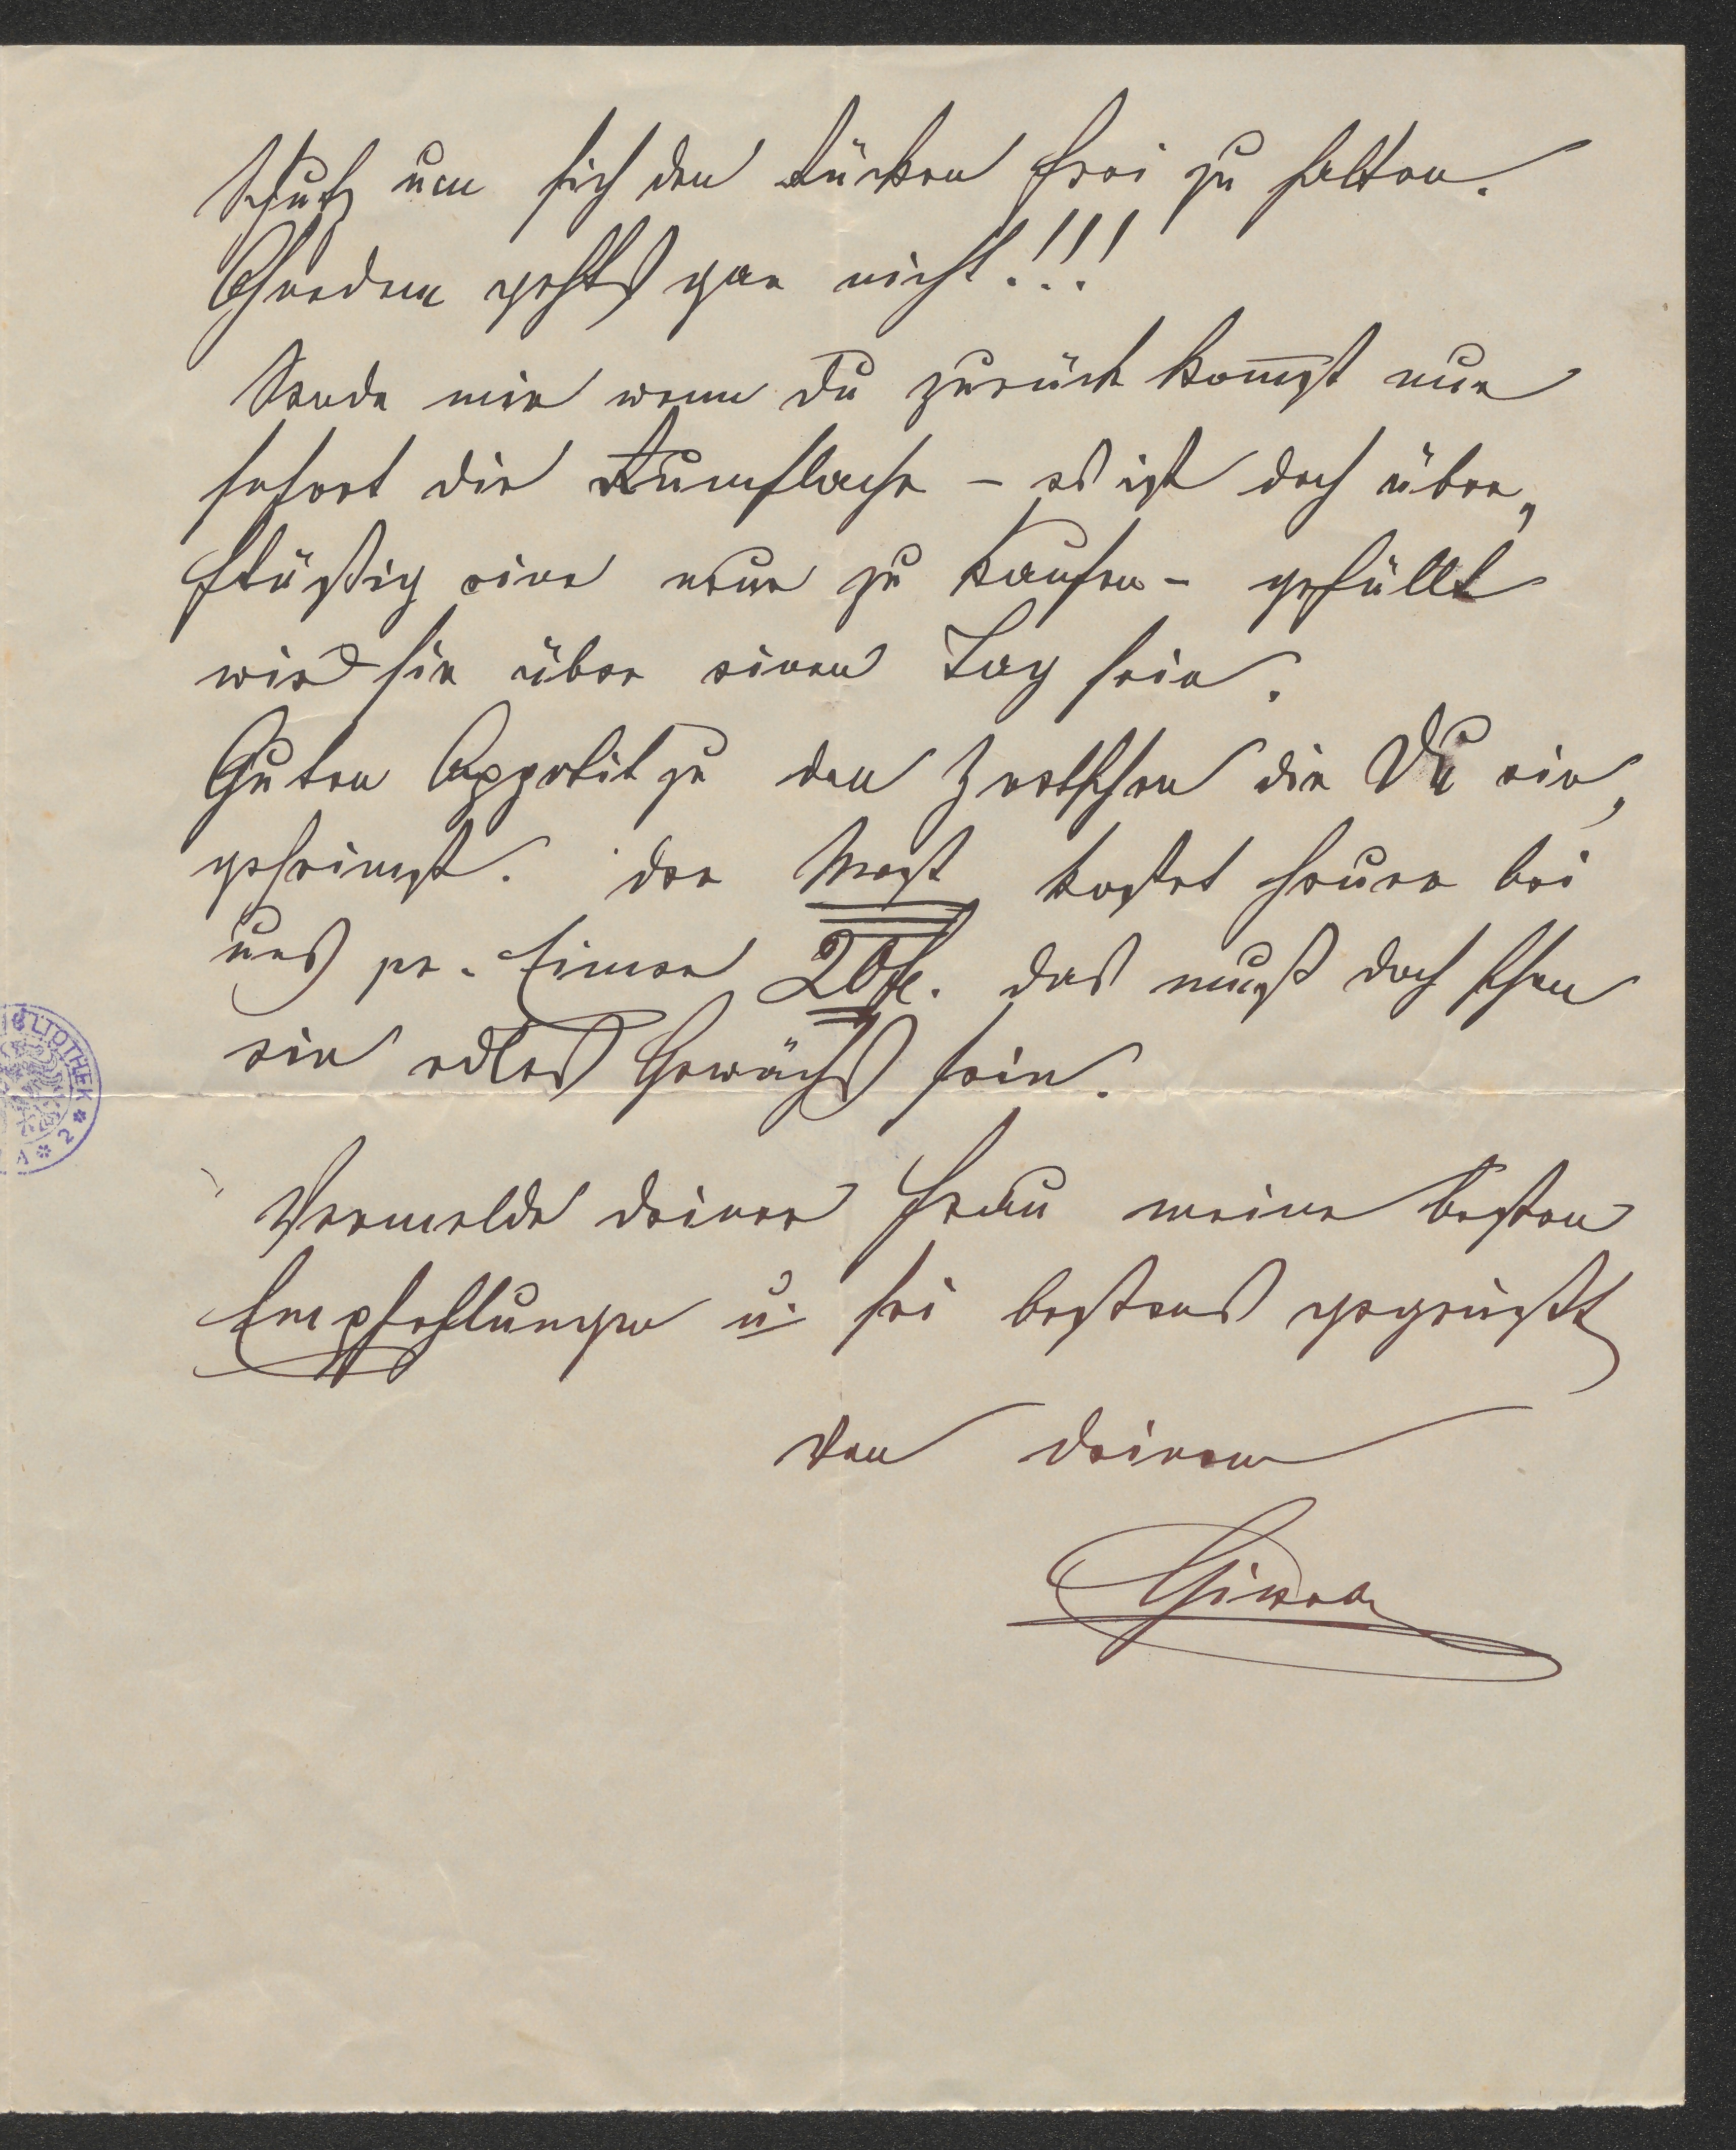 Schutz um sich den Rücken frei zu halten.
Ohnedem gehts gar nicht!!!
Sende mir wenn Du zurück kom̅st nur
sofort die Rumflasche – es ist doch über„
flüßig eine neue zu kaufen – gefüllt
wird sie über einen Tag sein.
Guten Appetit zu den Zwetschen die Du ein„
geheimst. Der Most kostet heuer bei
uns pr. Eimer 20 fl. das muß doch schon
ein edles Gewächs sein.
Vermelde deiner Frau meine besten
Empfehlungen u. sei bestens gegrüßt
von deinem
BIBLIOTHEK * 2 *